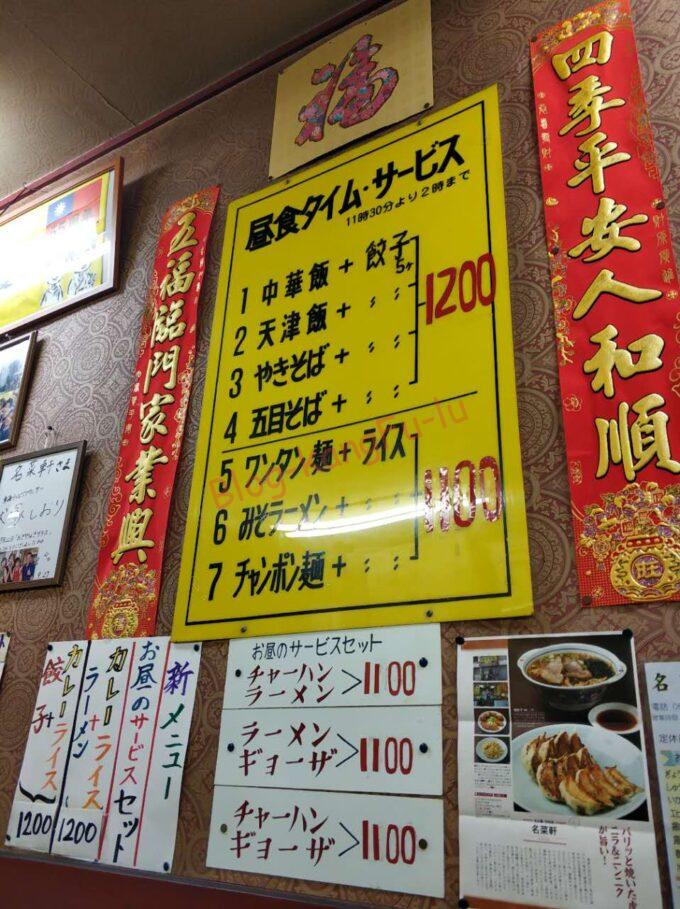 福
四季平安人和順
五福臨門家業興
昼食タイム・サービス
11時30分より2時まで
1 中華飯 + 餃子 5ヶ
2 天津飯 + 〃 〃
3 やきそば + 〃 〃
4 五目そば + 〃 〃
1200
5 ワンタン麺 + ライス
6 みそラーメン + 〃 〃
7 チャンポン麺 + 〃 〃
1100
名菜軒さま
しおり
新メニュー
お昼のサービスセット
カレーライス
ラーメン+
1200
カレーライス
餃子+
1200
お昼のサービスセット
チャーハン
ラーメン > 1100
ラーメン
ギョーザ > 1100
チャーハン
ギョーザ > 1100
名菜軒
パリッと焼いた皮
ニラ&ニンニク
が旨い!
名
電話
営業時間
定休